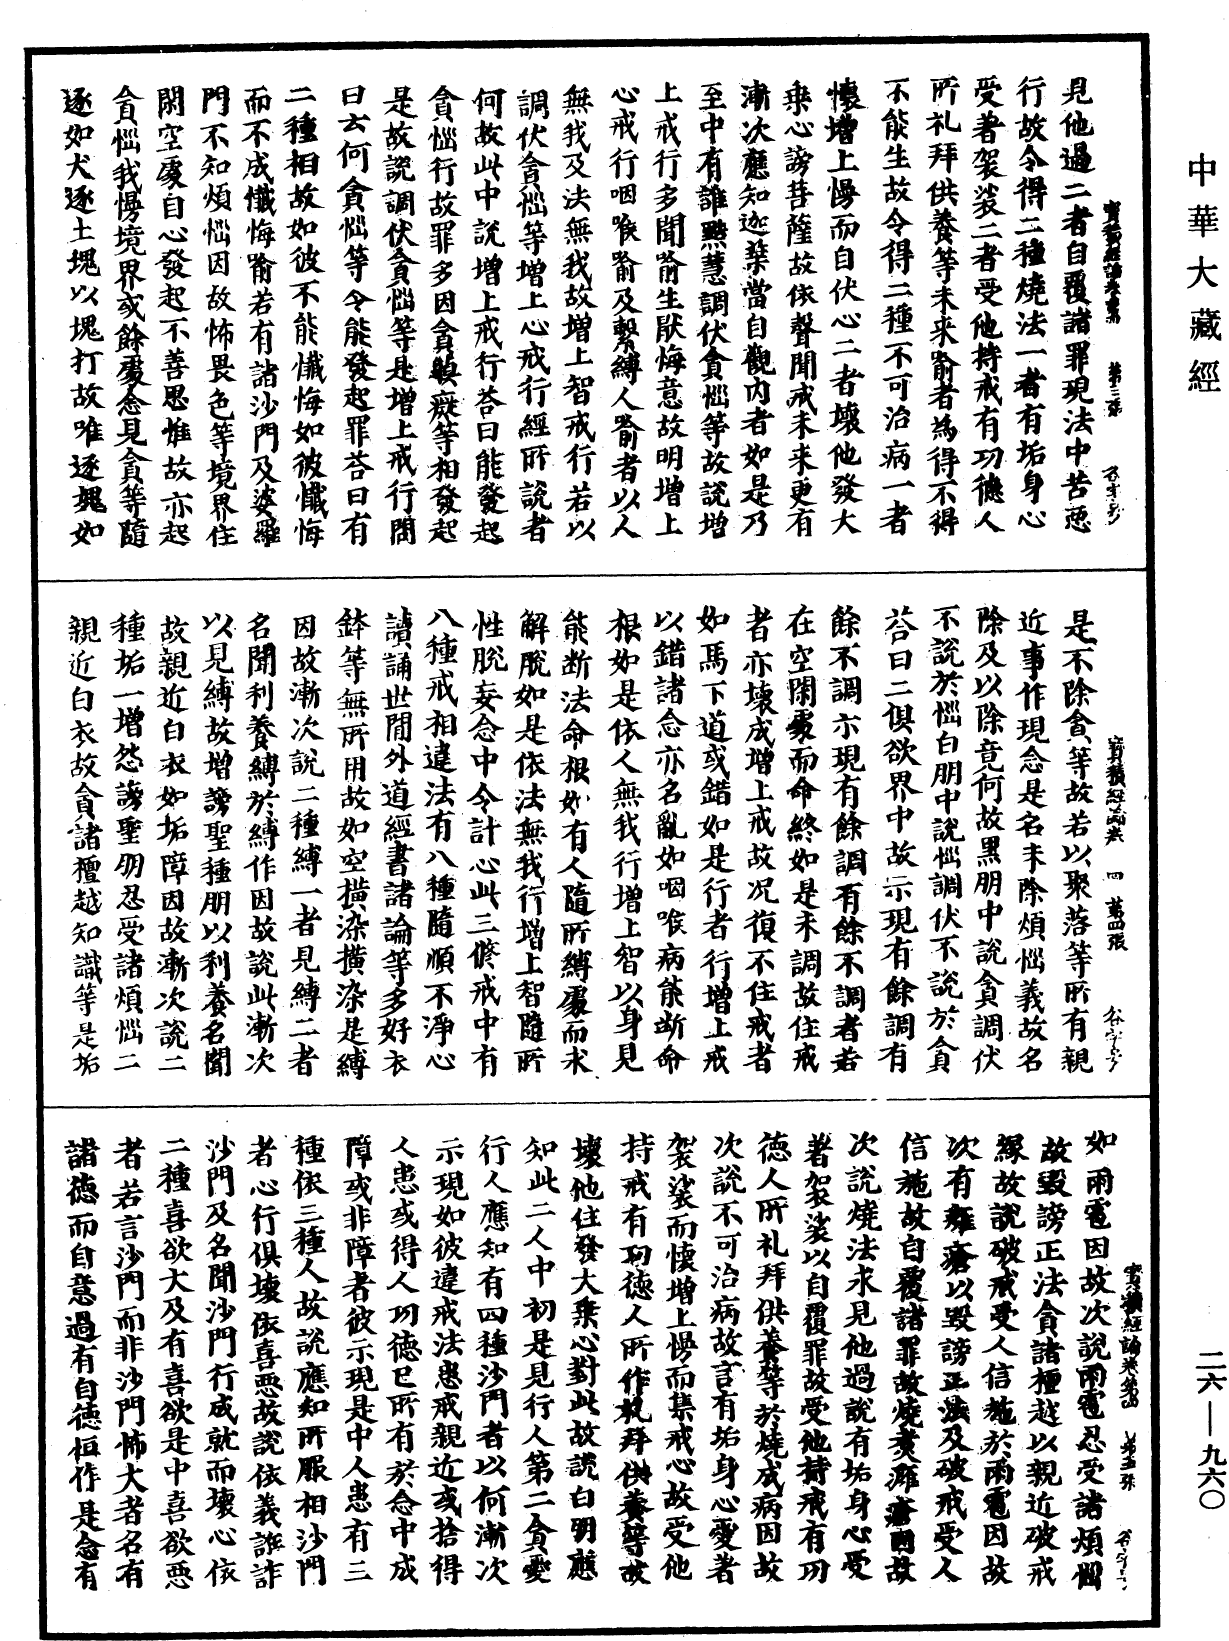 中華大藏經
見他過二者自覆諸罪現法中苦惡
行故令得二種燒法一者有垢身心
受著袈裟二者受他持戒有功德人
所礼拜供養等未來喻者為得不得
不能生故令得二種不可治病一者
懷增上慢而自伏心二者壞他發大
乘心謗菩薩故依聲聞戒未來更有
漸次應知迦葉當自觀內者如是乃
至中有誰黠慧調伏貪惱等故說增
上戒行多聞喻生猒悔意故明增上
心戒行咽喉喻及繫縛人喻者以人
無我及法無我故增上智戒行若以
調伏貪惱等增上心戒行經所說者
何故此中說增上戒行荅曰能發起
貪惱行故罪多因貪瞋癡等相發起
是故說調伏貪惱等是增上戒行問
曰云何貪惱等令能發起罪荅曰有
二種相故如彼不能懺悔如彼懺悔
而不成懺悔喻若有諸沙門及婆羅
門不知煩惱因故怖畏色等境界住
閑空處自心發起不善思惟故亦起
貪惱我慢境界或餘處念見貪等隨
逐如犬逐土塊以塊打故唯逐塊如
寶積經論卷第四 第四張 谷字号
是不除貪等故若以聚落等所有親
近事作現念是名未除煩惱義故名
除及以除竟何故黑朋中說貪調伏
不說於惱白朋中說惱調伏不說於貪
荅曰二俱欲界中故示現有餘調有
餘不調示現有餘調有餘不調者若
在空閑處而命終如是未調故住戒
者亦壞成增上戒故況復不住戒者
如馬下道或錯如是行者行增上戒
以錯諸念亦名亂如咽喉病能斷命
根如是依人無我行增上智以身見
能斷法命根如有人隨所縛處而求
解脫如是依法無我行增上智隨所
性脫妄念中令計心此三脩戒中有
八種戒相違法有八種隨順不淨心
讀誦世間外道經書諸論等多好衣
鉢等無所用故如空橫染橫染是縛
因故漸次說二種縛一者見縛二者
名聞利養縛於縛作因故說此漸次
以見縛故增謗聖種朋以利養名聞
故親近白衣如垢障因故漸次說二
種垢一增忩謗聖朋忍受諸煩惱二
親近白衣故貪諸檀越知識等是垢
寶積經論卷第四 第五張 谷字号
如雨雹因故次說雨雹忍受諸煩惱
故毀謗正法貪諸檀越以親近破戒
緣故說破戒受人信施於雨雹因故
次有癰瘡以毀謗正法及破戒受人
信施故自覆諸罪故燒煑癰瘡因故
次說燒法求見他過說有垢身心受
著袈裟以自覆罪故受他持戒有功
德人所礼拜供養等於燒成病因故
次說不可治病故言有垢身心愛著
袈裟而懷增上慢而集戒心故受他
持戒有功德人所作礼拜供養等故
壞他住發大乘心對此故說白朋應
知此二人中初是見行人第二貪愛
行人應知有四種沙門者以何漸次
示現如彼違戒法患戒親近或捨得
人患或得人功德已所有於念中成
障或非障者彼示現是中人患有三
種依三種人故說應知所服相沙門
者心行俱壞依喜惡故說依義誰詐
沙門及名聞沙門行成就而壞心依
二種喜欲大及有喜欲是中喜欲惡
者若言沙門而非沙門怖大者名有
諸德而自意過有自德恒作是念有
二六—九六〇